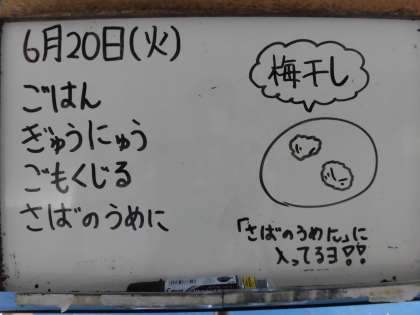 6月20日(火)
ごはん
ぎゅうにゅう
ごもくじる
さばのうめに
梅干し
「さばのうめに」に
入ってるヨ!!